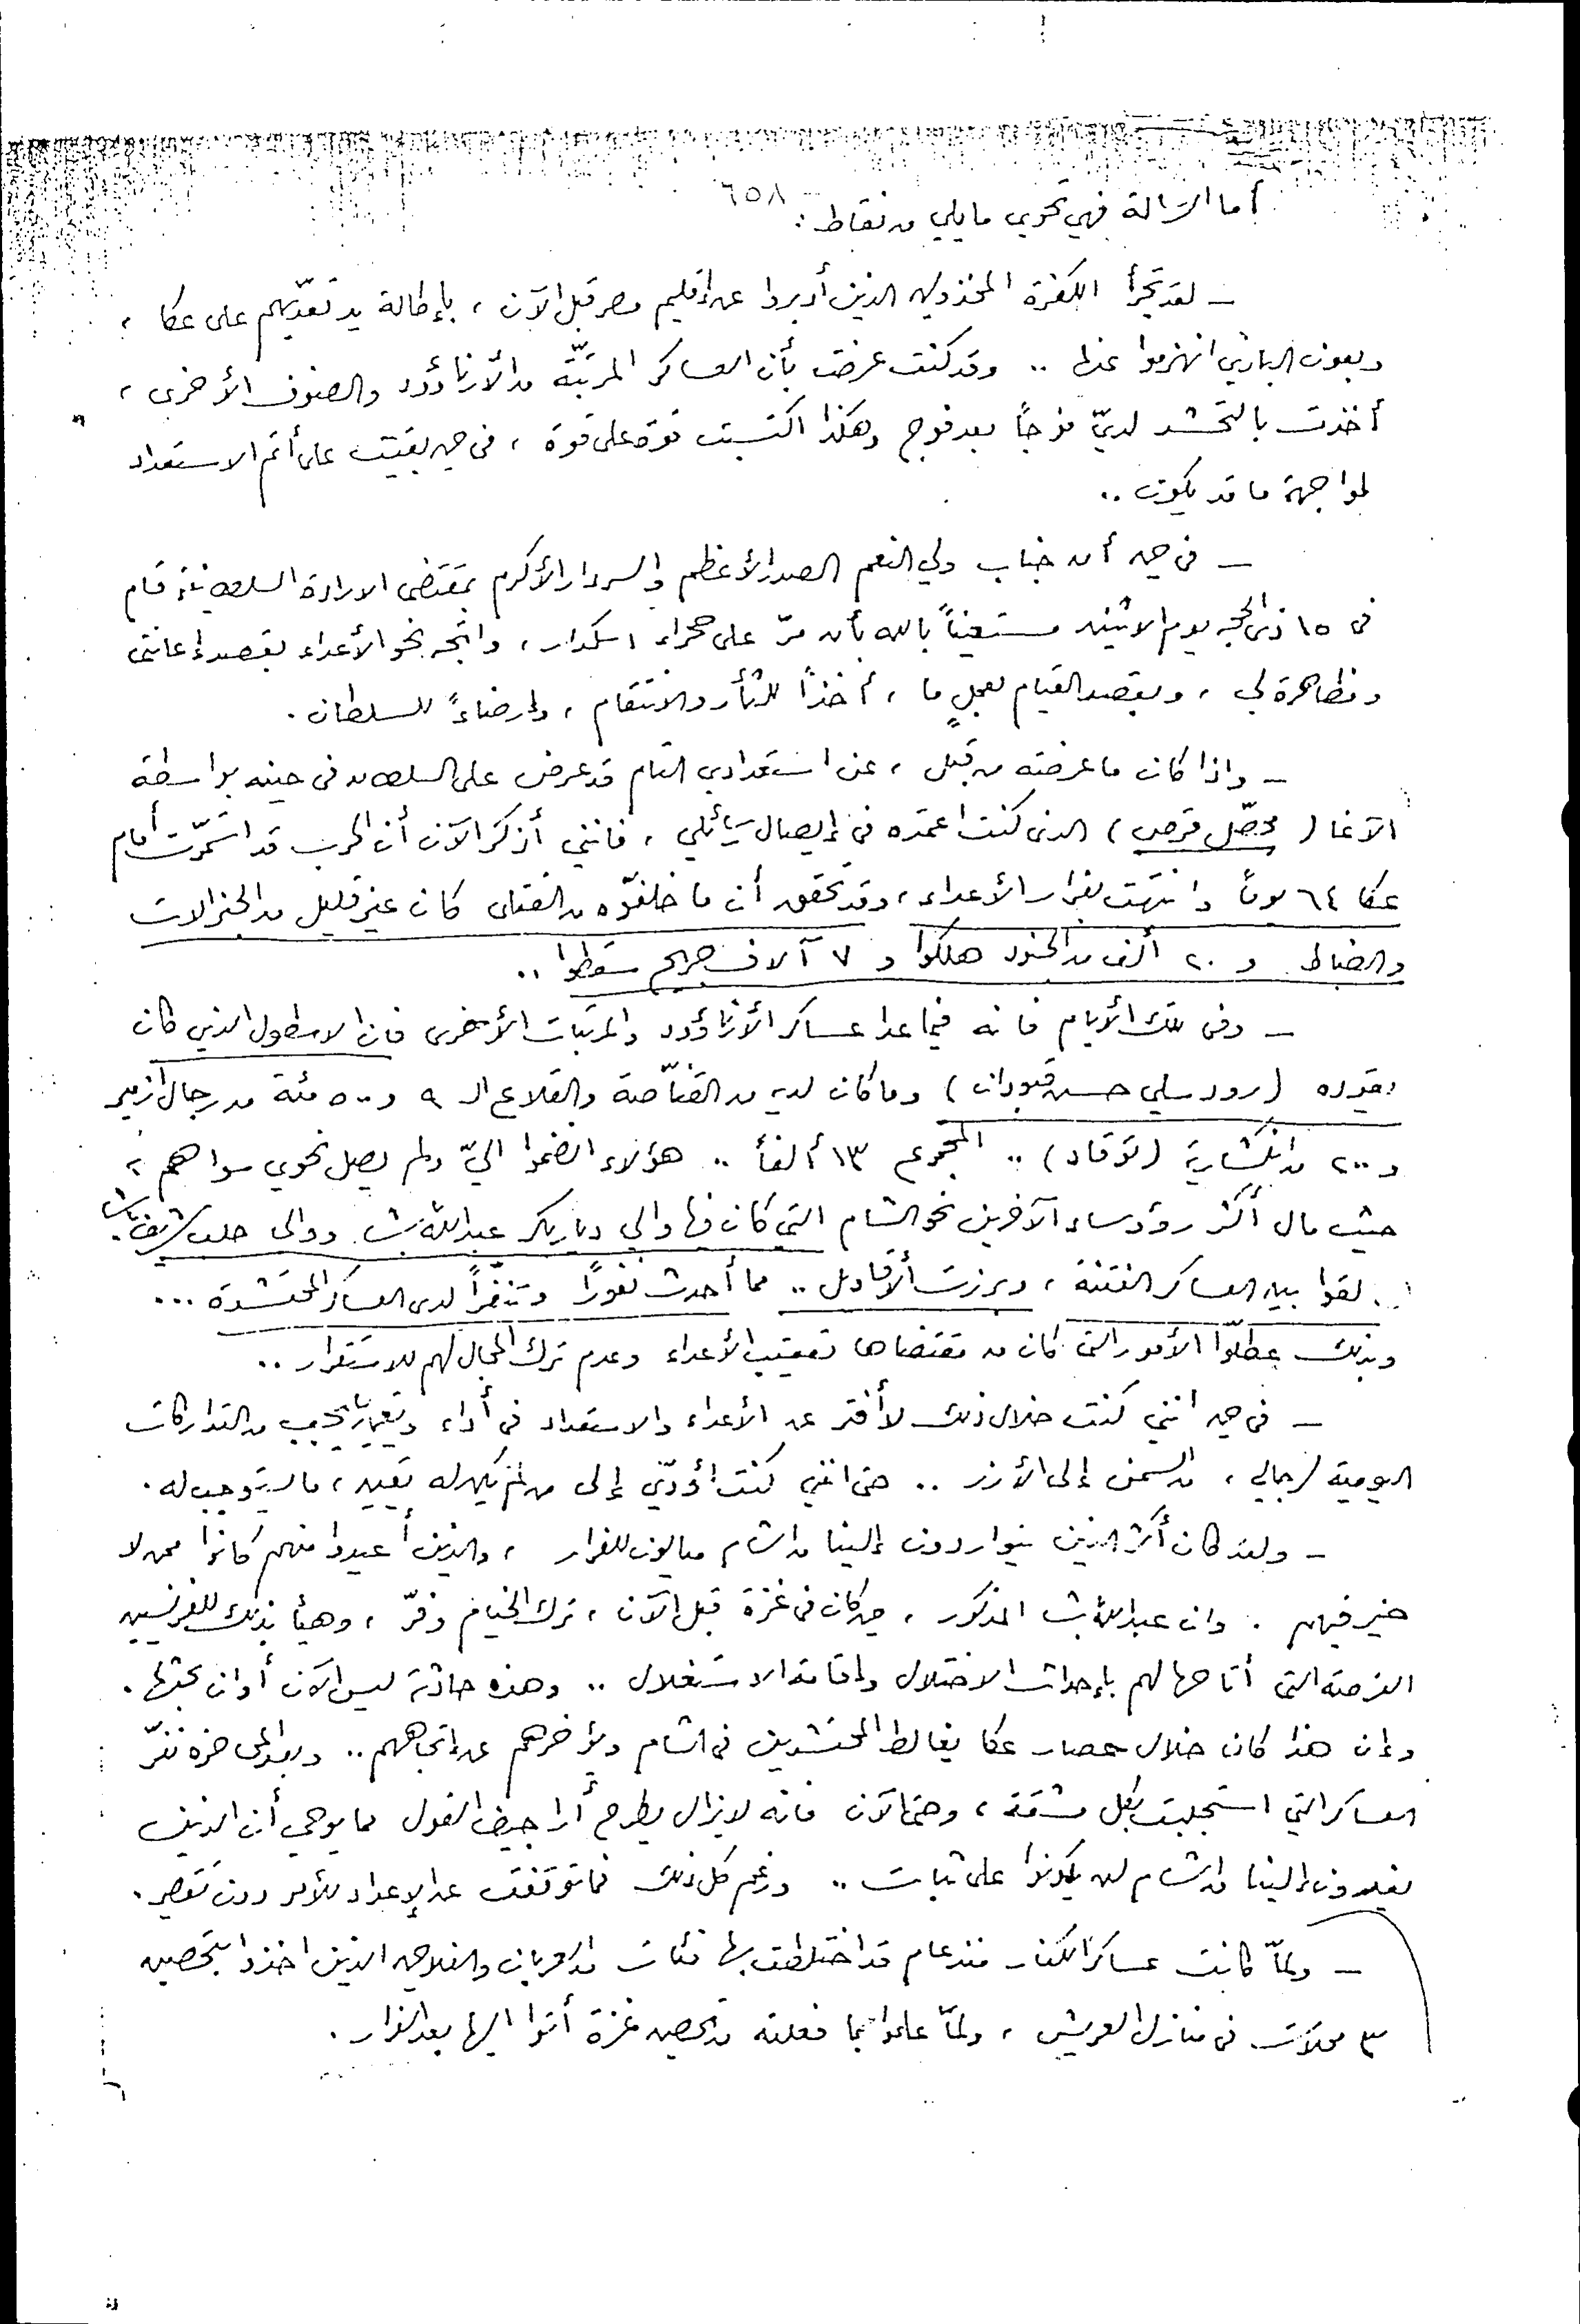 ٦٥٨
أما الرسالة فهي تحوي ما يلي من نقاط :
– لقد تجرأ الكفرة المخذولين الذين أدبروا عن اقليم مصر قبل الآن ، بإطالة يد تعدّيهم على عكا ،
وبعون الباري انهزموا عنها .. وقد كنت عرضت بأن العساكر المرتبّة من الأرناؤود والصنوف الأخرى ،
أخذت بالتحشد لديّ فوجاً بعد فوج وهكذا اكتسبت قوة على قوة ، في حين بقيت على أتم الاستعداد
لمواجهة ما قد يكون ..
– في حين أن جناب ولي النعم الصدر الأعظم والسردار الأكرم بمقتضى الارادة السلطانية قام
في ١٥ ذي الحجه يوم الاثنين مستعيناً بالله بأن مرّ على صحراء اسكدار ، واتجه نحو الأعداء بقصد إعانتي
ومظاهرة لي ، وبقصد القيام بعملٍ ما ، أخذاً للثأر والانتقام ، وإرضاءً للسلطان .
– واذا كان ما عرضته من قبلي ، عن استعدادي التام قد عرض على السلطان في حينه بواسطة
الآغا ( محصّل قبرص ) الذي كنت اعتمده في إيصال رسائلي ، فانني أذكر الآن أن الحرب قد استمرّت أمام
عكا ٦٤ يوماً وانتهت بفرار الأعداء ، وقد تحقق أن ما خلفوّه من القتلى كان غير قليل من الجنرالات
والضباط و ٢٠ ألف من الجنود هلكوا و ٧ آلاف جريح سقطوا ..
– وفي تلك الأيام فانه فيما عدا عساكر الأرناؤود والمرتبات الأخرى فان الاسطول الذي كان
يقوده ( رودسلي حسن قبودان ) وما كان لديه من القنّاصة والقلاع الـ ٩ و ٥٠٠ مئة من رجال ازمير
و ٢٠٠ من انكشارية ( توقاد ) .. المجموع ١٣ ألفاً .. هؤلاء انضموا اليّ ولم يصل نحوي سواهم ،
حيث مال أكثر رؤوساء الآخرين نحو الشام التي كان فيها والي ديار بكر عبد الله باشا ووالي حلب شريف باشا
لقوا بين العساكر الفتنة ، وبرزت الأقاويل .. مما أحدث نفوراً وتنفّراً لدى العساكر المحتشدة ...
وبذلك عطلّوا الأمور التي كان من مقتضاها تعقيب الأعداء وعدم ترك المجال لهم للاستقرار ..
– في حين انني كنت خلال ذلك لا أفتر عن الأعداء والاستعداد في أداء وتعيين ما يجب من التداركات
اليومية لرجالي ، من السمن إلى الأرز .. حتى انني كنت أؤدّي إلى من لم يكن له تعيين ، ما ليتوجب له .
– ولقد كان أكثر الذين يتواردون إلينا من الشام ميالون للفرار ، والذين أعيدوا منهم كانوا ممن لا
خير فيهم . وان عبد الله باشا المذكور ، حين كان في غزة قبل الآن ، ترك الخيام وفرّ ، وهيأ بذلك للفرنسيين
الفرصة التي أتاحها لهم بإحداث الاختلال وإقامة الاستغلال .. وهذه حادثة ليس الآن أوان بحثها .
وإن هذا كان خلال حصار عكا يغالط المحتشدين في الشام ويؤخرهم عن إتجاههم .. وبعد المحاضرة نفّر
العساكر التي استجلبت بكل مشقة ، وحتى الآن فانه لا يزال يطرح أراجيض القول مما يوحي أن الذين
يفدون إلينا من الشام لن يكونوا على ثبات .. ورغم كل ذلك فما توقفت عن الإعداد للأمر دون تقصير .
– ولمّا كانت عساكر الكفار منذ عام قد اختلطت بها فئات من العربان والفلاحين الذين اخذوا بتحصين
٣ محلات في منازل العريش ، ولمّا علموا بما فعلته من تحصين غزة أتوا اليها بعد الفرار .